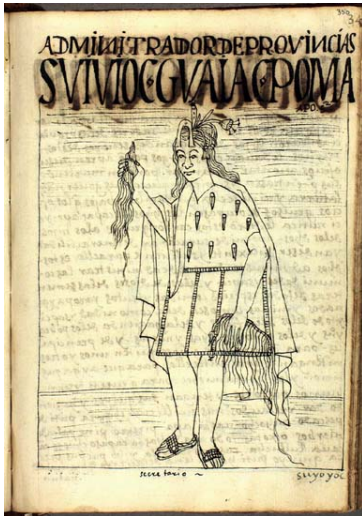 ADMINITRADOR DE PROVINCIAS
SVIVIOC·GVAIAC·POMA
APO
secretario
suyoyoc